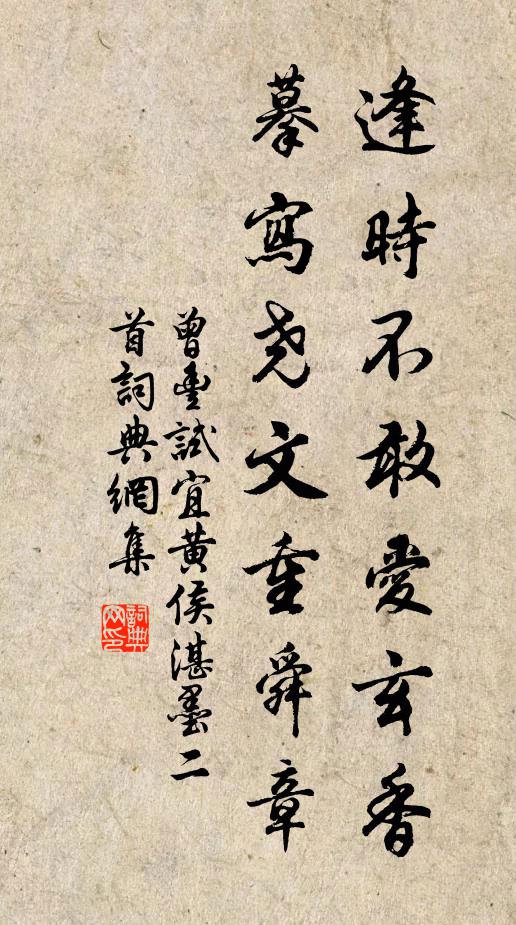 逢時不敢愛玄香
摹寫堯文重舜章
曾豐試宜黃侯湛墨二
首詞典網集
詞典
网印